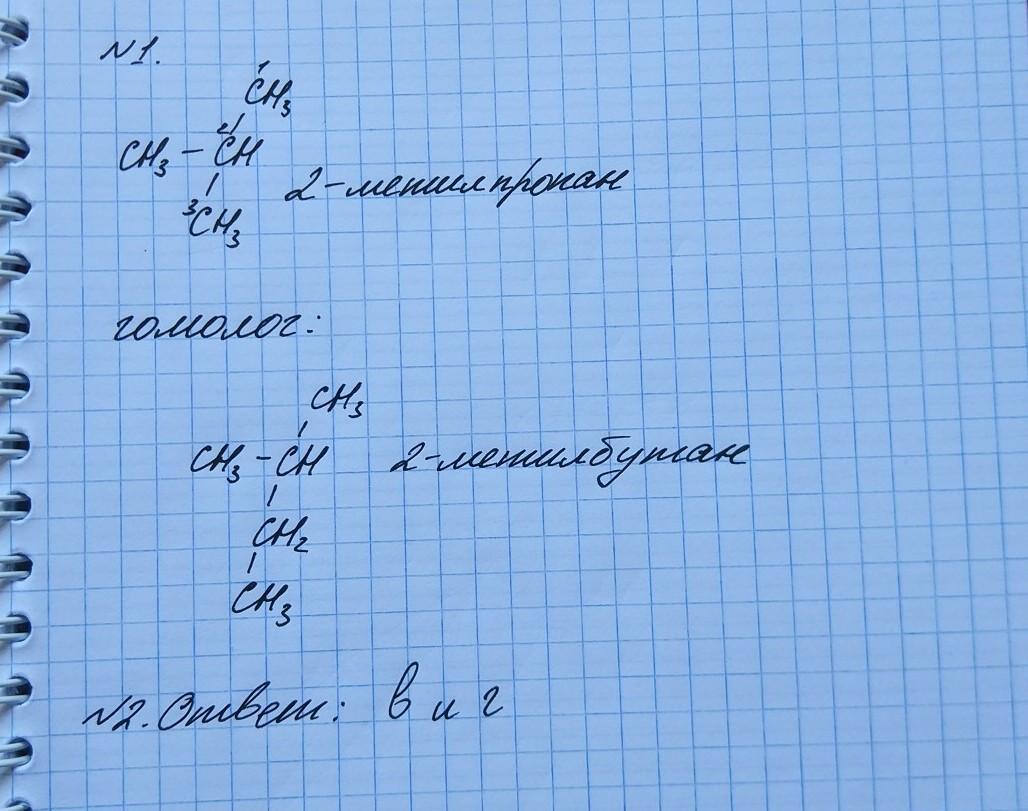 №1.
¹CH₃
CH₃ – ²CH
³CH₃
2-метилпропан
гомолог:
CH₃
CH₃ – CH
2-метилбутан
CH₂
CH₃
№2. Ответ: в и г